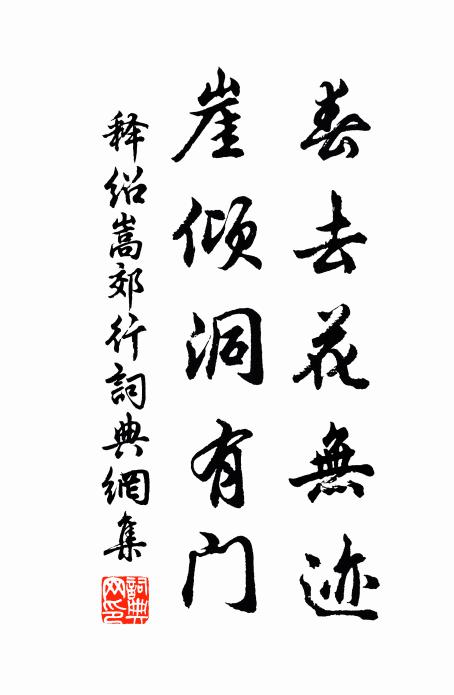 春去花無迹
崖傾洞有门
释绍嵩郊行詞典網集
詞典网印